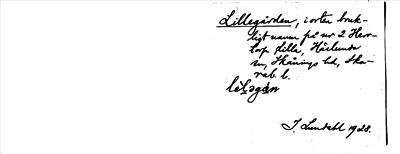 Lillegården, i orten bruk-
ligt namn på nr 2 Herr-
torp Lilla, Härlunda
sn, Skånings hd, Ska-
rab. l.
J. Lundahl 1928.